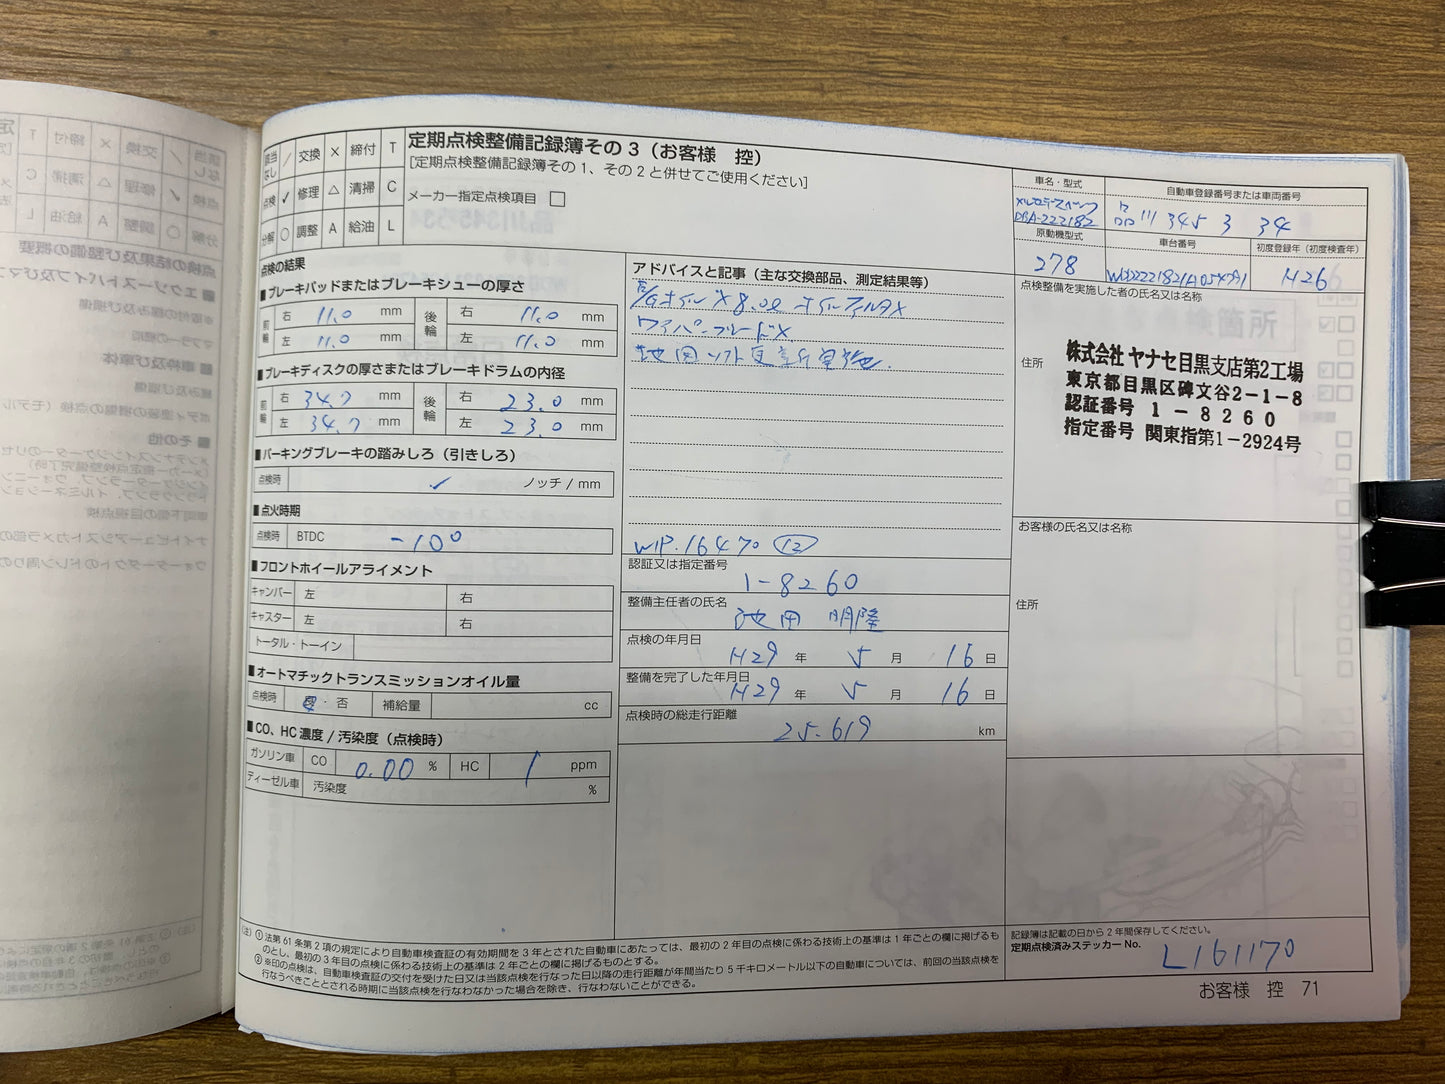 定期点検整備記録簿その3（お客様　控）
[定期点検整備記録簿その1、その2と併せてご使用ください]
メーカー指定点検項目 □
該当なし ／ 交換 × 締付 T
点検 ✓ 修理 △ 清掃 C
分解 ○ 調整 A 給油 L
車名・型式
メルセデスベンツ
DBA-222182
自動車登録番号または車両番号
品川 345 3 34
原動機型式
278
車台番号
WDD2221821A054791
初度登録年（初度検査年）
H26
点検の結果
■ブレーキパッドまたはブレーキシューの厚さ
前輪 右 11.0 mm 後輪 右 11.0 mm
左 11.0 mm 左 11.0 mm
■ブレーキディスクの厚さまたはブレーキドラムの内径
前輪 右 34.7 mm 後輪 右 23.0 mm
左 34.7 mm 左 23.0 mm
■パーキングブレーキの踏みしろ（引きしろ）
点検時 ✓ ノッチ / mm
■点火時期
点検時 BTDC -10°
■フロントホイールアライメント
キャンバー 左 右
キャスター 左 右
トータル・トーイン
■オートマチックトランスミッションオイル量
点検時 ・否 補給量 cc
■CO、HC濃度 / 汚染度（点検時）
ガソリン車 CO 0.00 % HC 1 ppm
ディーゼル車 汚染度 %
アドバイスと記事（主な交換部品、測定結果等）
オイル × 8.0ℓ オイルフィルタ×
ワイパーブレード×
地図ソフト更新
WIP.16470 (12)
認証又は指定番号
1-8260
整備主任者の氏名
池田 明隆
点検の年月日
H29 年 5 月 16 日
整備を完了した年月日
H29 年 5 月 16 日
点検時の総走行距離
25.619 km
点検整備を実施した者の氏名又は名称
住所
株式会社 ヤナセ目黒支店第2工場
東京都目黒区碑文谷2-1-8
認証番号 1-8260
指定番号 関東指第1-2924号
お客様の氏名又は名称
住所
(注) ①法第61条第2項の規定により自動車検査証の有効期間を3年とされた自動車にあたっては、最初の2年目の点検に係わる技術上の基準は1年ごとの欄に掲げるも
のとし、最初の3年目の点検に係わる技術上の基準は2年ごとの欄に掲げるものとする。
②※印の点検は、自動車検査証の交付を受けた日又は当該点検を行なった日以降の走行距離が年間当たり5千キロメートル以下の自動車については、前回の当該点検を
行なうべきこととされる時期に当該点検を行なわなかった場合を除き、行なわないことができる。
記録簿は記載の日から2年間保存してください。
定期点検済みステッカーNo.
L161170
お客様　控　71